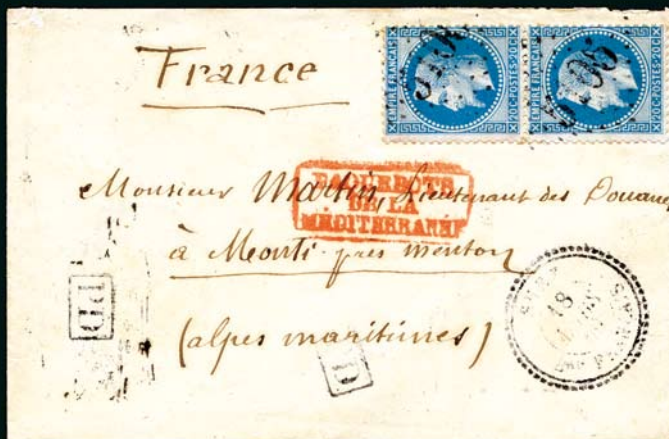 EMPIRE FRANÇAIS 20C POSTES 20C EMPIRE FRANÇAIS 20C POSTES 20C
France
PAQUEBOTS
DE LA
MÉDITERRANÉE
Monsieur Martin, Lieutenant des Douanes
à Monti près Menton
(alpes maritimes)
PD
18